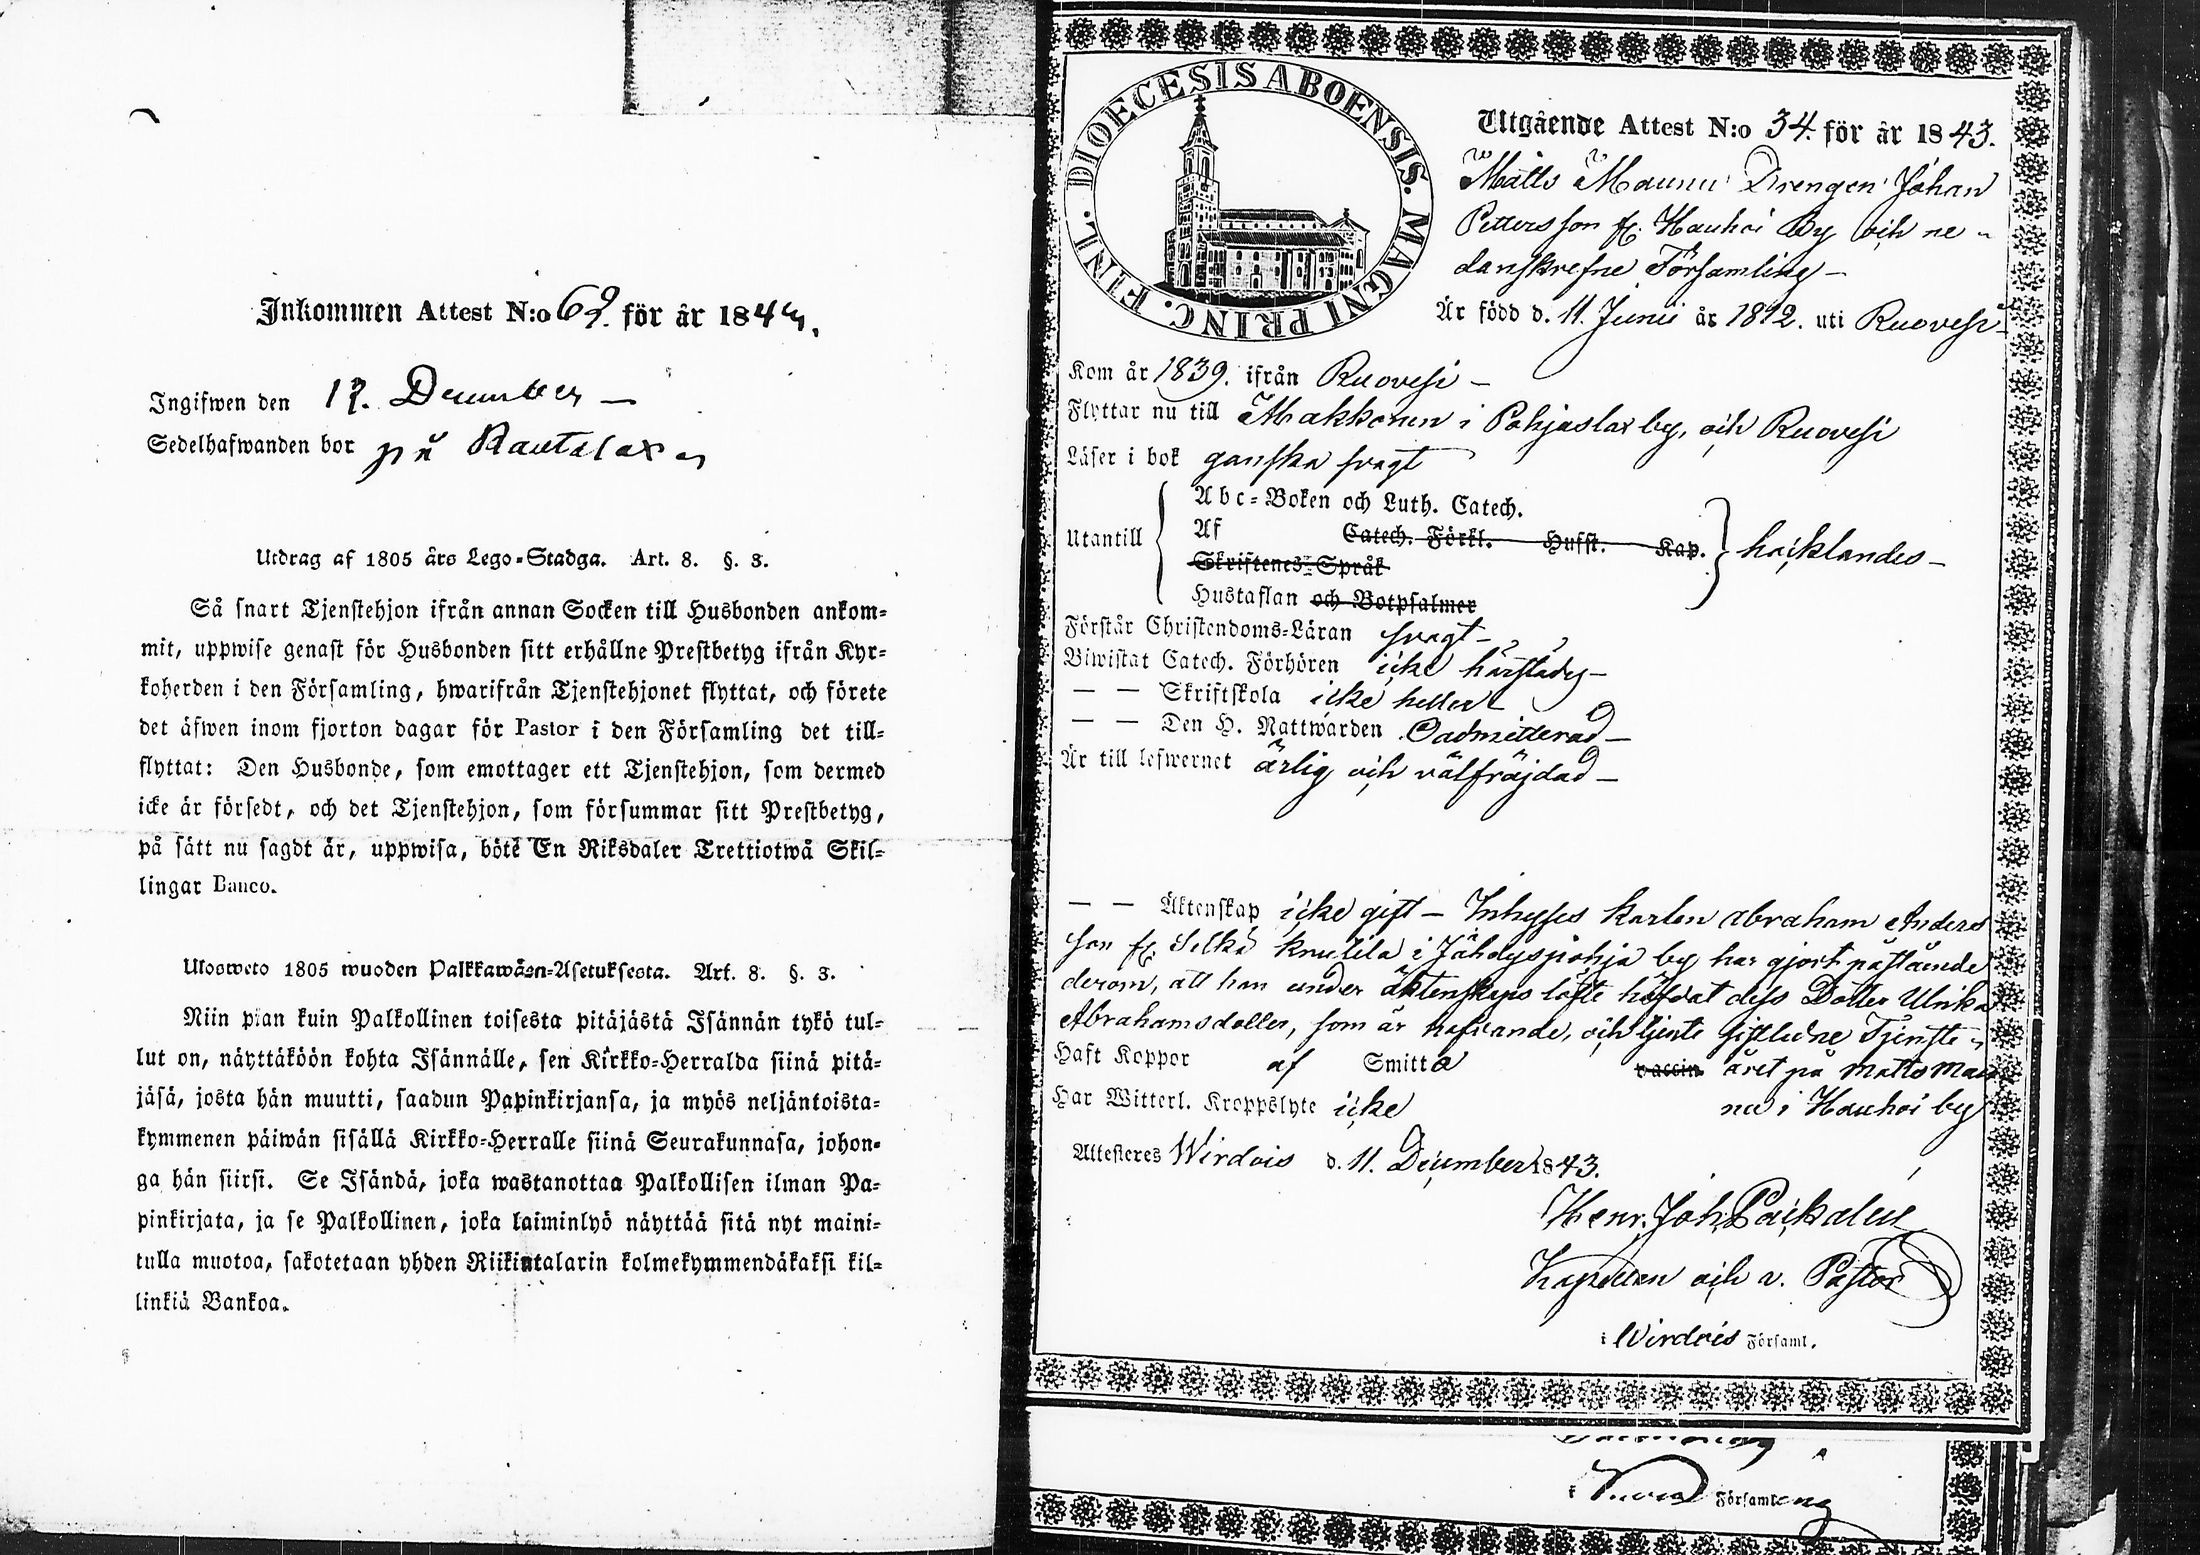 Inkommen Attest N:o 62. för år 1844.
Ingifwen den 12. December —
Sedelhafwanden bor på Rautalax
Utdrag af 1805 års Lego-Stadga. Art. 8. §. 3.
Så snart Tjenstehjon ifrån annan Socken till Husbonden ankom-
mit, uppwise genast för Husbonden sitt erhållne Prestbetyg ifrån Kyr-
koherden i den Församling, hwarifrån Tjenstehjonet flyttat, och förete
det äfwen inom fjorton dagar för Pastor i den Församling det till-
flyttat: Den Husbonde, som emottager ett Tjenstehjon, som dermed
icke är försedt, och det Tjenstehjon, som försummar sitt Prestbetyg,
på sätt nu sagdt är, uppwisa, böte En Riksdaler Trettiotwå Skil-
lingar Banco.
Ulosweto 1805 wuoden Palkkawäen-Asetuksesta. Art. 8. §. 3.
Niin pian kuin Palkollinen toisesta pitäjästä Isännän tykö tul-
lut on, näyttäköön kohta Isännälle, sen Kirkko-Herralda siinä pitä-
jäsä, josta hän muutti, saadun Papinkirjansa, ja myös neljäntoista-
kymmenen päiwän sisällä Kirkko-Herralle siinä Seurakunnasa, johon-
ga hän siirsi. Se Isändä, joka wastanottaa Palkollisen ilman Pa-
pinkirjata, ja se Palkollinen, joka laiminlyö näyttää sitä nyt maini-
tulla muotoa, sakotetaan yhden Riikintalarin kolmekymmendäkaksi kil-
linkiä Bankoa.
DIOECESIS ABOENSIS. MAGNI PRINC. FINL.
Utgående Attest N:o 34. för år 1843.
Matts Maunu Drengen Johan
Pettersson fr. Hauhoi By och ne-
danskrefne Församling —
Är född d. 11. Junii år 1812. uti Ruovesi
Kom år 1839. ifrån Ruovesi —
Flyttar nu till Makkonen i Pohjaslax by, och Ruovesi
Läser i bok ganska svagt
Abc-Boken och Luth. Catech.
Utantill Af Catech. Förkl. Husst. Kap. hacklandes —
Skriftenes Språk
Hustaflan och Botpsalmer
Förstår Christendoms-Läran svagt —
Biwistat Catech. Förhören icke härstädes —
— — Skriftskola icke heller
— — Den H. Nattwarden Oadmitterad —
Är till lefwernet ärlig och välfräjdad —
— — Äktenskap icke gift — Inhyses karlen Abraham Anders
son fr. Selki Knutila i Jähdyspohja by har gjort påstående
derom, att han under äktenskaps löfte häfdat dess Dotter Ulrika
Abrahamsdotter, som är hafvande, och tjente sistledne Tjenste-
Haft Koppor af Smitta vaccin året på Matts Mau
Har Witterl. Kroppslyte icke nu i Hauhoi by
Attesteres Wirdois d. 11. December 1843.
Henr. Joh. Packalen
Kapellan och v. Pastor
i Wirdois Församl.
i Församling